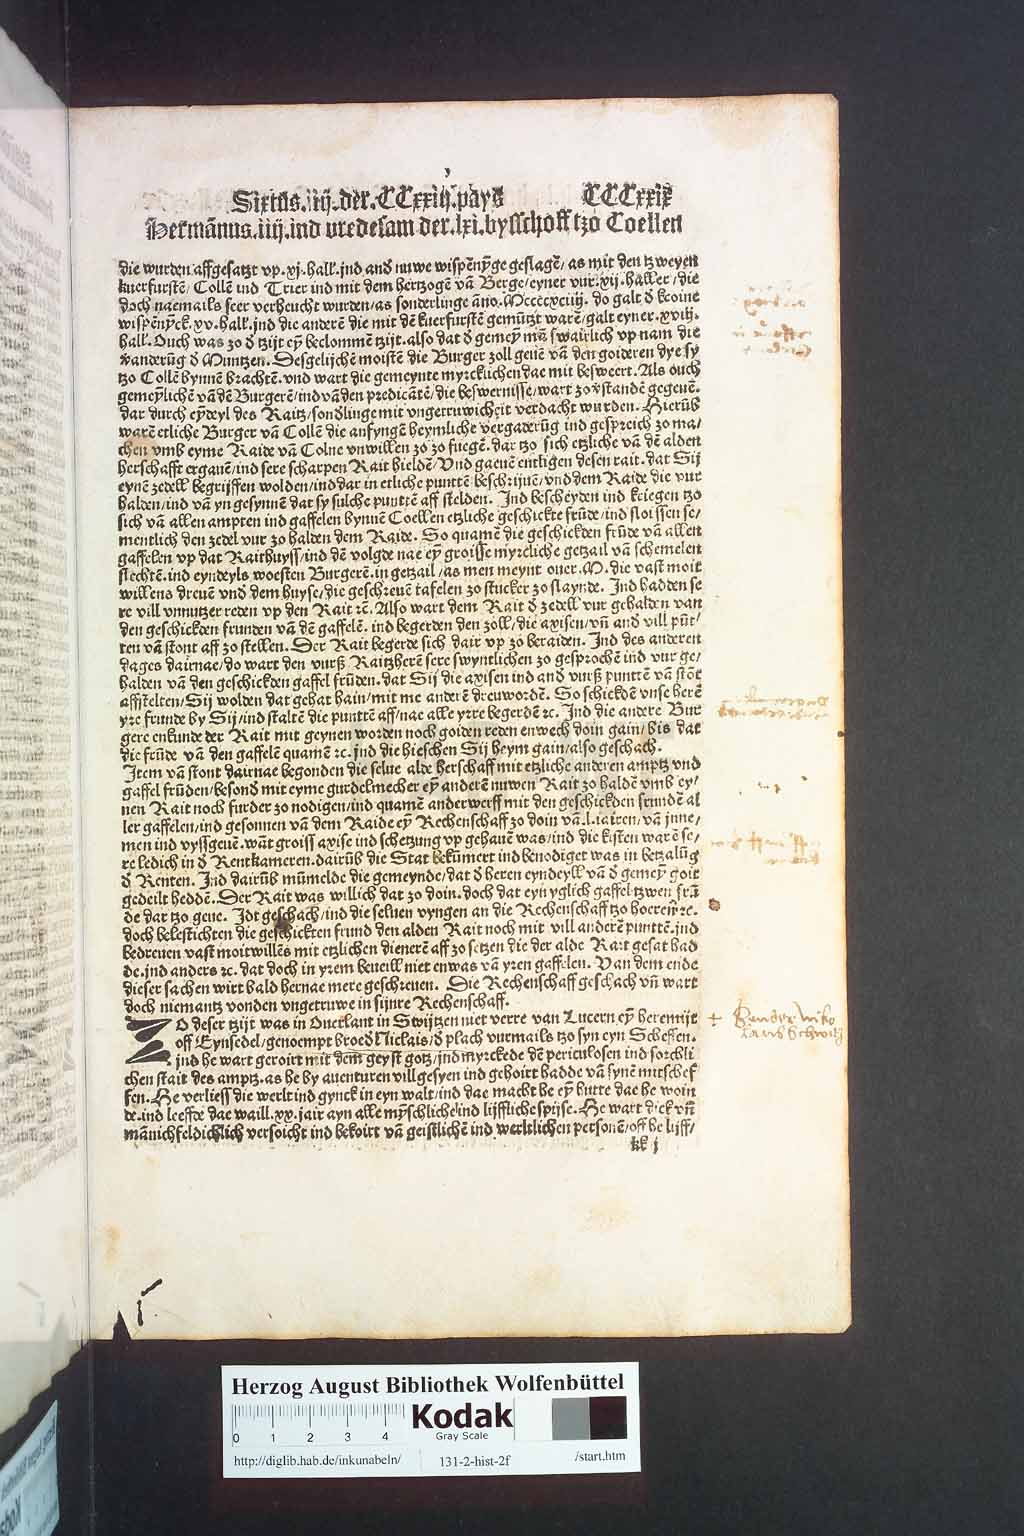 Sixtus.iiij.der.CCxxiij.pays CCCxxix
Hermãnus.iiij.ind vredesam der.lxi.bysschoff tzo Coellen
die wurden affgesatzt vp.xj.hall.ind and nuwe wispẽnỹge geslagẽ/as mit den tzweyen
kuerfurstẽ/Collẽ ind Trier ind mit dem hertzogẽ vã Berge/eyner vur.xij.haller/die
doch naemails seer verheucht wurden/as sonderlinge ãno.Mccccxciiij. do galt d̕ keoine
wispẽnỹck.xv.hall.ind die anderẽ die mit dẽ kuerfurstẽ gemũtzt warẽ/galt eyner.xviij.
hall.Ouch was zo d̕ tzijt eỹ beclommẽ tzijt.also dat d̕ gemeỹ mã swairlich vp nam die
v̕anderũg d̕ Muntzen. Desgelijchẽ moistẽ die Burger zoll geuẽ vã den goideren dye sy
tzo Collẽ bynnẽ brachtẽ.vnd wart die gemeynte myrcklichen dae mit besweert.Als ouch
gemeỹlichẽ vã dẽ Burgerẽ/ind vã den predicãtẽ/die beswernisse/wart zo v̕standẽ gegeuẽ.
dar durch eỹdeyl des Raitz/sond̕linge mit vngetruwicheit verdacht wurden. Hierũb
warẽ etliche Burger vã Collẽ die anfyngẽ heymliche vergaderũg ind gespreich zo ma/
chen vmb eyme Raide vã Colne vnwillen zo zo fuegẽ.dar tzo sich etzliche vã dẽ alden
herschafft ergauẽ/ind sere scharpen Rait hieldẽ/Vnd gauẽ entligen desen rait.dat Sij
eynẽ zedell begrijffen wolden/ind dar in etliche punttẽ beschrijuẽ/vnd dem Raide die vur
halden/ind vã yn gesynnẽ dat sy sulche punttẽ aff stelden. Ind bescheyden ind kriegen tzo
sich vã allen ampten ind gaffelen bynnẽ Coellen etzliche geschickte frũde/ind sloissen se/
mentlich den zedel vur zo halden dem Raide. So quamẽ die geschickden frũde vã allen
gaffelen vp dat Raithuyss/ind dẽ volgde nae eỹ groisse myrcliche getzail vã schemelen
slechtẽ.ind eyndeyls woesten Burgerẽ.in getzail/as men meynt ouer.M.die vast moit
willens dreuẽ vnd dem huyse/die geschreuẽ tafelen zo stucker zo slaynde. Ind hadden se
re vill vnnutzer reden vp den Rait ꝛc. Also wart dem Rait d̕ zedell vur gehalden van
den geschickden frunden vã dẽ gaffelẽ. ind begerden den zoll/die axisen/vñ and̕ vill pũt/
ten vã stont aff zo stellen. Der Rait begerde sich dair vp zo beraiden. Ind des anderen
dages dairnae/do wart den vurß Raitzherẽ sere swyntlichen zo gesprochẽ ind vur ge/
halden vã den geschickden gaffel frũden.dat Sij die axisen ind and̕ vurß punttẽ vã stõt
affstelten/Sij wolden dat gehat hain/mit me anderẽ dreuwordẽ. So schickdẽ vnse herẽ
yꝛe frunde by Sij/ind staltẽ die punttẽ aff/nae alle yꝛre begerdẽ ꝛc. Ind die andere Bur
gere enkunde der Rait mit geynen worden noch goiden reden enwech doin gain/bis dat
die frũde vã den gaffelẽ quamẽ ꝛc.ind die hieschen Sij heym gain/also geschach.
Item vã stont dairnae begonden die selue alde herschaff mit etzliche anderen amptz vnd
gaffel frũden/besond̕ mit eyme gurdelmecher eỹ anderẽ nuwen Rait zo haldẽ vmb ey/
nen Rait noch furder zo nodigen/ind quamẽ anderwerff mit den geschickden frundẽ al
ler gaffelen/ind gesonnen vã dem Raide eỹ Rechenschaff zo doin vã.l.iairen/vã inne/
men ind vyssgeuẽ.wãt groiss axise ind schetzung vp gehauẽ was/ind die kisten warẽ se/
re ledich in d̕ Rentkameren.dairũb die Stat bekũmert ind benodiget was in betzalũg
d̕ Renten. Ind dairũb mũmelde die gemeynde/dat d̕ heren eyndeyll vã d̕ gemeỹ goit
gedeilt heddẽ. Der Rait was willich dat zo doin.doch dat eyn yglich gaffel tzwen frũ
de dar tzo geue. Idt geschach/ind die seluen vyngen an die Rechenschaff tzo hoeren ꝛc.
doch belestichten die geschickten frund den alden Rait noch mit vill anderẽ punttẽ.ind
bedreuen vast moitwillẽs mit etzlichen dienerẽ aff zo setzen die der alde Rait gesat had
de.ind anders ꝛc. dat doch in yrem beueill niet enwas vã yren gaffelen. Van dem ende
dieser sachen wirt bald hernae mere geschreuen. Die Rechenschaff geschach vñ wart
doch niemantz vonden vngetruwe in sijnre Rechenschaff.
ZO deser tzijt was in Ouerlant in Swijtzen niet verre van Lucern eỹ heremijt
off Eynsedel/genoempt broed̕ Niclais/d̕ plach vurmails tzo syn eyn Scheffen.
ind he wart geroirt mit dem geyst gotz/ind myrckede dẽ periculosen ind sorchli
chen stait des amptz.as he by auenturen vill gesyen ind gehoirt hadde vã synẽ mitschef
fen.He verliess die werlt ind gynck in eyn walt/ind dae macht he eỹ hutte dae he woin
de.ind leeffde dae waill.xx.jair ayn alle mỹschliche ind lijffliche spijse.He wart dick vñ
mãnichfeldichlich versoicht ind bekoirt vã geistlichẽ ind werltlichen personẽ/off he lijff/
kk j
+ Bruder Niko
laus Schweitz
Herzog August Bibliothek Wolfenbüttel
0 1 2 3 4
Kodak
Gray Scale
http://diglib.hab.de/inkunabeln/ 131-2-hist-2f /start.htm